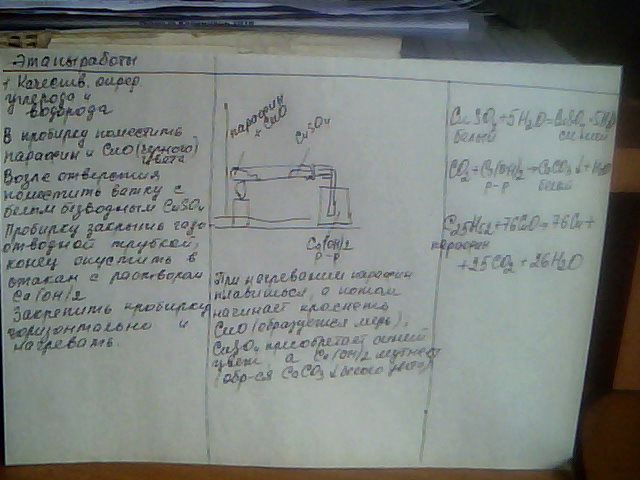 Этапы работы
1. Качеств. опред.
углерода и
водорода
В пробирку поместить
парафин и CuO (черного)
цвета
Возле отверстия
поместить ватку с
белым безводным CuSO4
Пробирку закрыть газо-
отводной трубкой,
конец опустить в
стакан с раствором
Ca(OH)2
Закрепить пробирку
горизонтально и
нагревать.
парафин
+ CuO
CuSO4
Ca(OH)2
р-р
При нагревании парафин
плавиться, а потом
начинает краснеть
CuO (образуется медь),
CuSO4 приобретает синий
цвет а Ca(OH)2 мутнеет
(обр-ся CaCO3 белого цвета)
CuSO4+5H2O=CuSO4·5H2O
белый синий
CO2+Ca(OH)2→CaCO3↓+H2O
р-р белый
C25H52+76CuO→76Cu+
парафин
+25CO2+26H2O